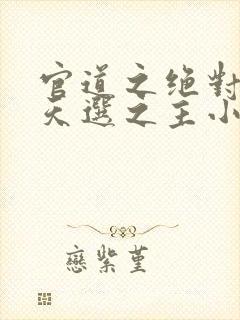 官道之绝對
天選之主小
戀紫堇